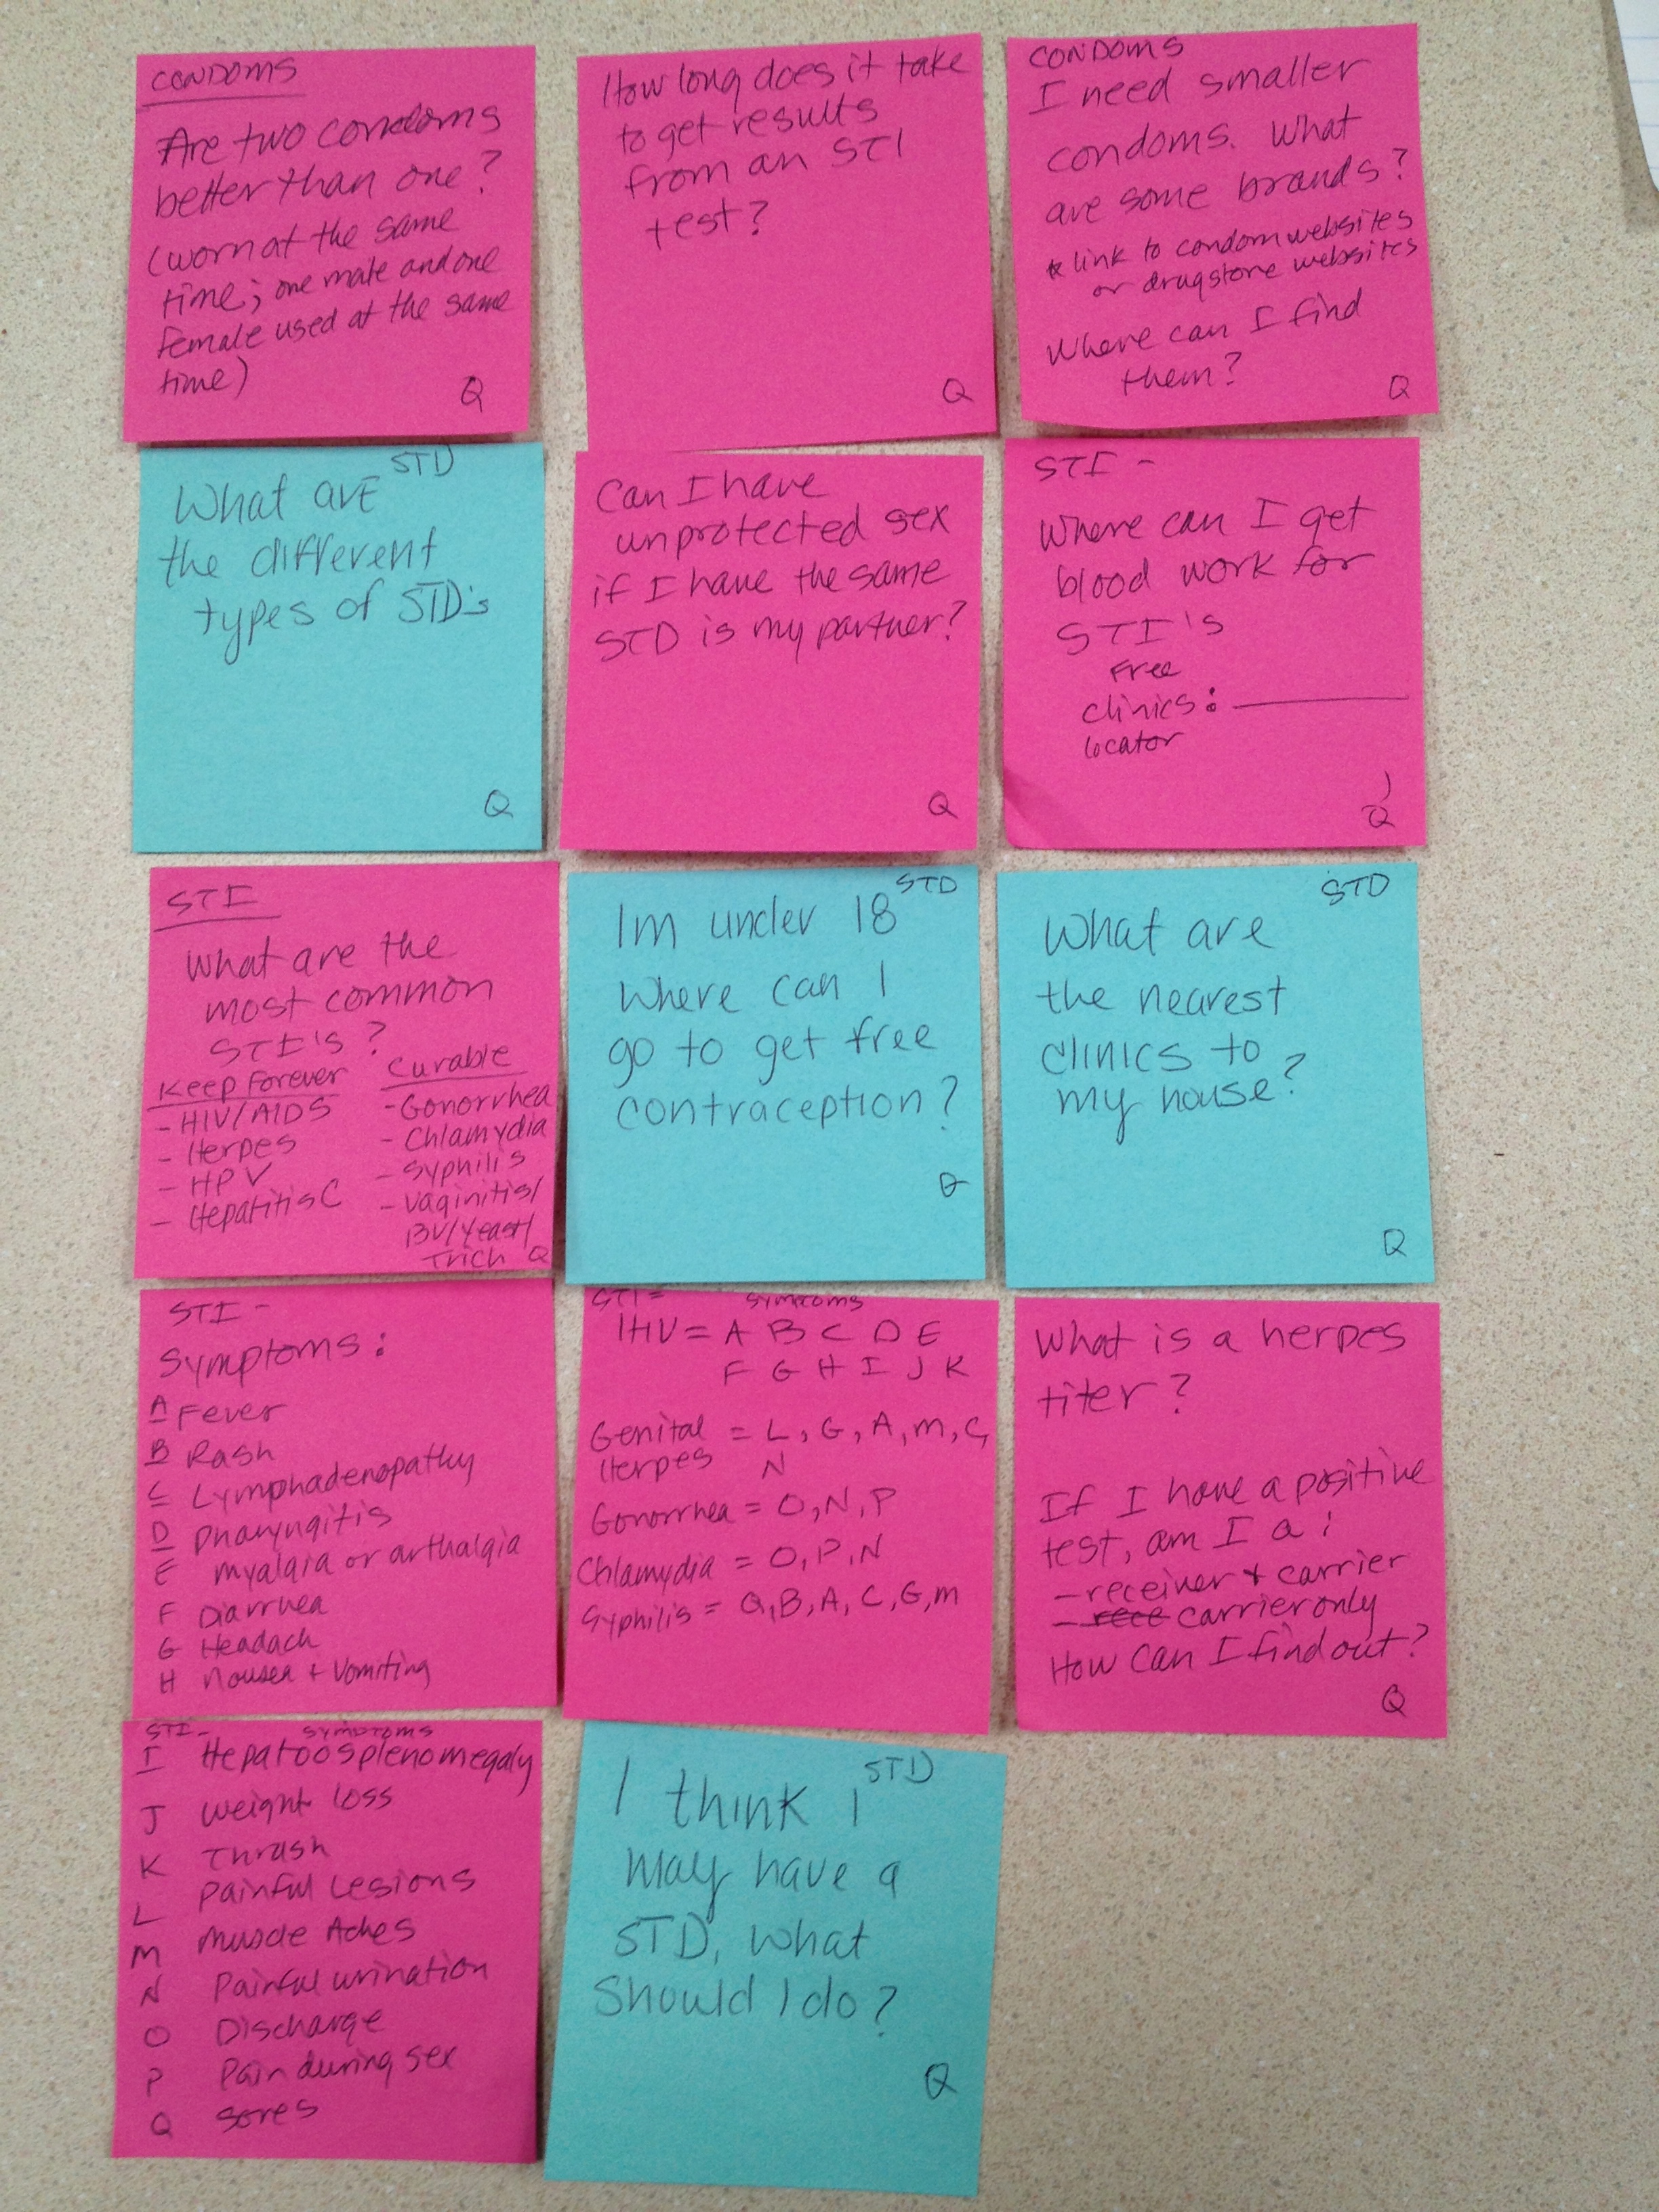 CONDOMS
Are two condoms
better than one?
(worn at the same
time; one male and one
female used at the same
time)
Q
How long does it take
to get results
from an STI
test?
Q
CONDOMS
I need smaller
condoms. What
are some brands?
* link to condom websites
or drugstore websites
Where can I find
them?
Q
STD
What are
the different
types of STD's
Q
Can I have
unprotected sex
if I have the same
STD is my partner?
Q
STI -
Where can I get
blood work for
STI's
Free
clinics: ______
locator
Q
STI
What are the
most common
STI's?
Keep Forever
- HIV/AIDS
- Herpes
- HPV
- Hepatitis C
Curable
- Gonorrhea
- Chlamydia
- Syphilis
- Vaginitis/
BV/Yeast/
Trich Q
STD
Im under 18
Where can I
go to get free
contraception?
Q
STD
What are
the nearest
clinics to
my house?
Q
STI -
Symptoms:
A Fever
B Rash
C Lymphadenopathy
D Pharyngitis
E myalgia or arthalgia
F Diarrhea
G Headach
H Nausea + Vomiting
STI = Symptoms
HIV = A B C D E
F G H I J K
Genital = L, G, A, M, C,
Herpes N
Gonorrhea = O, N, P
Chlamydia = O, P, N
Syphilis = Q, B, A, C, G, M
What is a herpes
titer?
If I have a positive
test, am I a:
- receiver + carrier
- rece carrier only
How can I find out?
Q
STI - Symptoms
I Hepatoosplenomegaly
J Weight loss
K Thrush
L Painful Lesions
M Muscle Aches
N Painful urination
O Discharge
P Pain during sex
Q Sores
STD
I think I
may have a
STD, what
Should I do?
Q